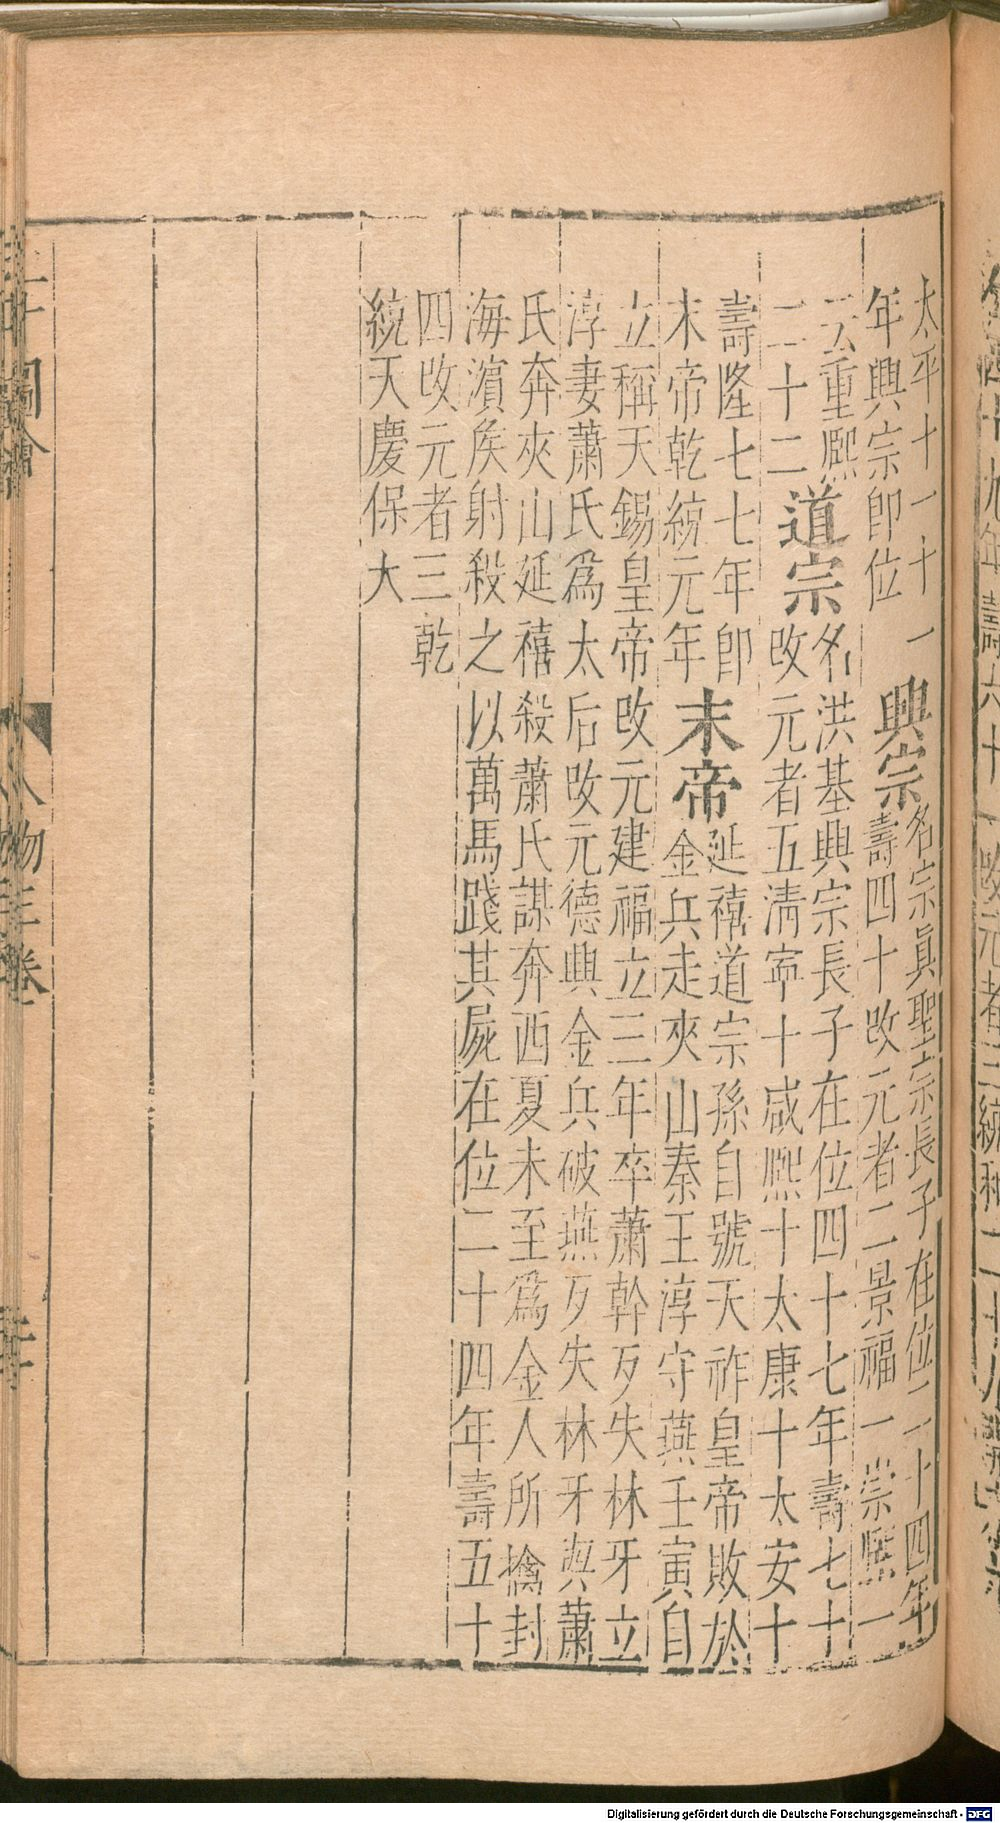 太平十一十一
年興宗即位
興宗
名宗眞聖宗長子在位二十四年
壽四十改元者二景福一崇熙一
云重熙
二十二
道宗
名洪基興宗長子在位四十七年壽七十
改元者五淸寧十咸熙十太康十太安十
壽隆七七年即
末帝乾統元年
末帝
延禧道宗孫自號天祚皇帝敗於
金兵走夾山秦王淳守燕壬寅自
立稱天錫皇帝改元建福立三年卒蕭幹歹失林牙立
淳妻蕭氏爲太后改元德興金兵破燕歹失林牙與蕭
氏奔夾山延禧殺蕭氏謀奔西夏未至爲金人所擒封
海濵矦射殺之以萬馬踐其屍在位二十四年壽五十
四改元者三乾
統天慶保大
圖會 人物三卷
Digitalisierung gefördert durch die Deutsche Forschungsgemeinschaft - DFG